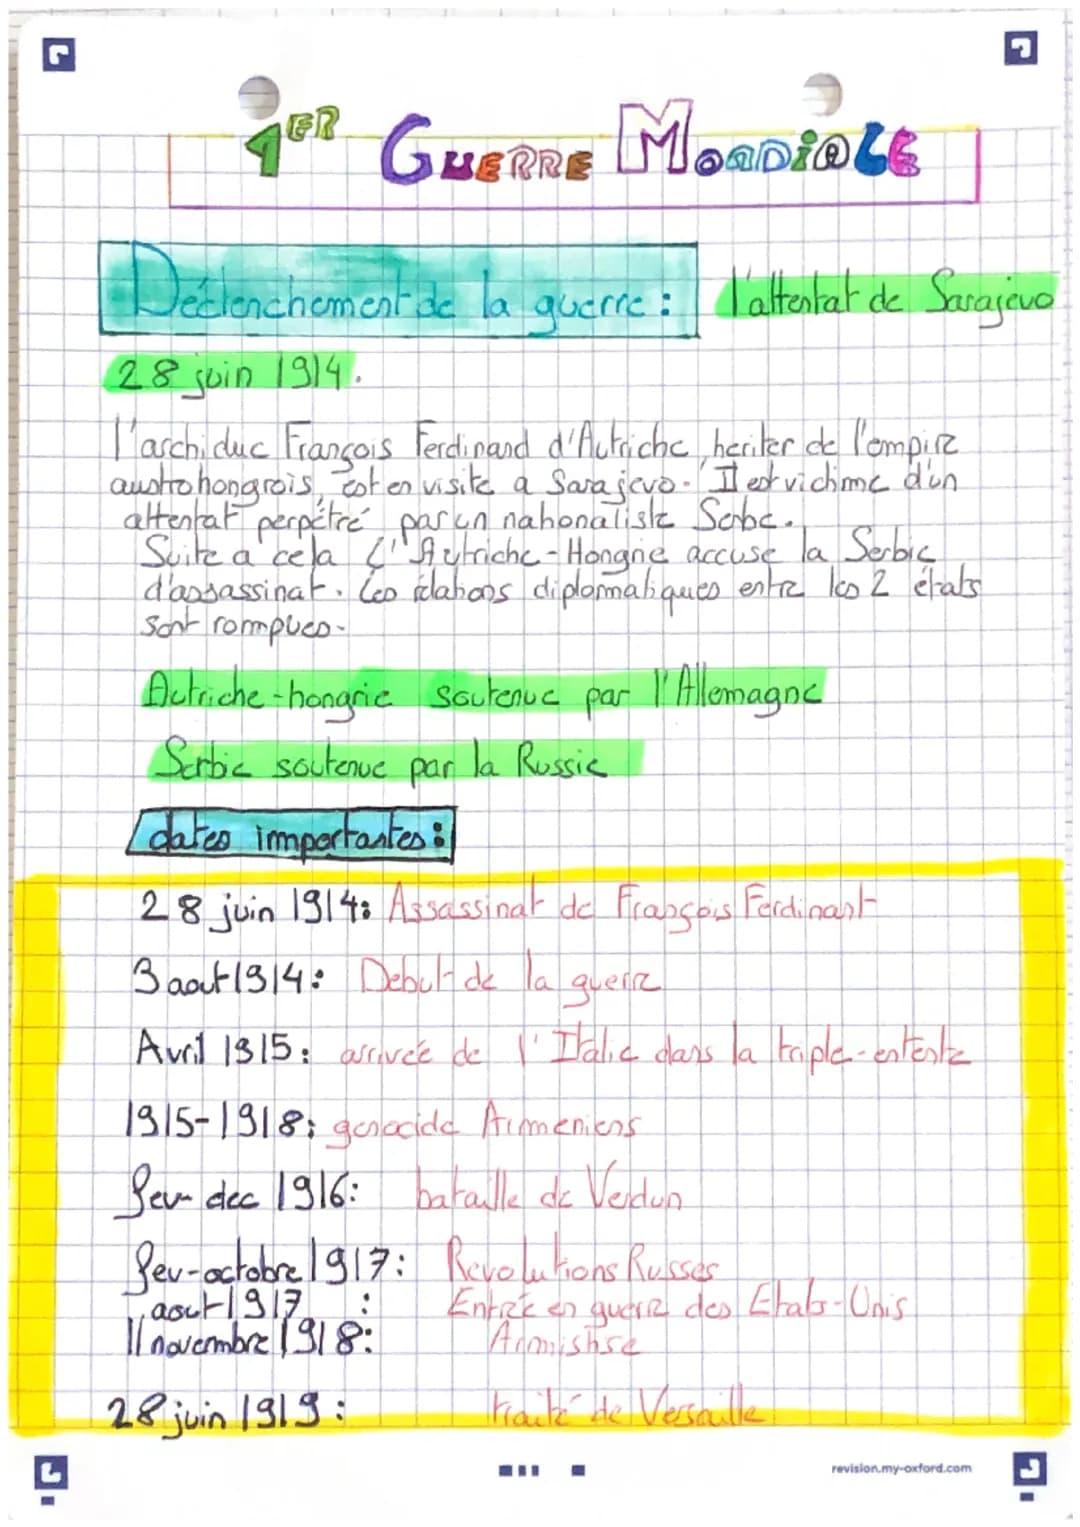 1ER GUERRE MONDiALE
Déclenchement de la guerre : l'attentat de Sarajevo
28 juin 1914.
l'archiduc François Ferdinand d'Autriche, heriter de l'empire
austro hongrois, est en visite a Sarajevo. Il est victime d'un
attentat perpétré par un nationaliste Serbe.
Suite a cela L'Autriche-Hongrie accuse la Serbie
d'assassinat. Les relations diplomatiques entre les 2 états
sont rompues.
Autriche-hongrie soutenue par l'Allemagne
Serbie soutenue par la Russie
dates importantes :
28 juin 1914: Assassinat de François Ferdinant
3 aout 1914: Debut de la guerre
Avril 1915: arrivée de l'Italie dans la triple-entente
1915-1918: genocide Armeniens
fev-dec 1916: bataille de Verdun
fev-octobre 1917: Revolutions Russes
aout 1917 : Entrée en guerre des Etats-Unis
11 novembre 1918: Armistise
28 juin 1919: traité de Versaille
revision.my-oxford.com